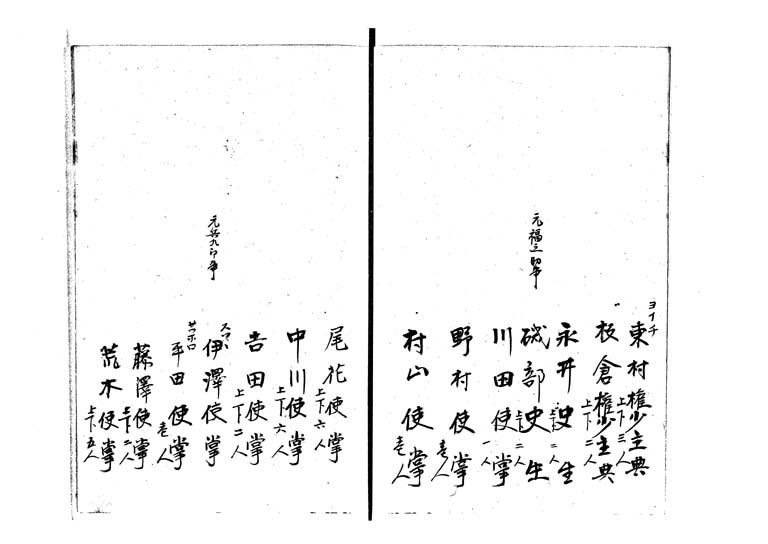 ヨイチ
東村権少主典
上下三人
板倉権少主典
上下二人
永井史生
上下二人
磯部史生
上下二人
川田使掌
一人
野村使掌
壱人
村山使掌
壱人
元福三印
尾花使掌
上下六人
中川使掌
上下六人
吉田使掌
上下二人
伊澤使掌
サッホロ
平田使掌
壱人
藤澤使掌
上下二人
荒木使掌
上下五人